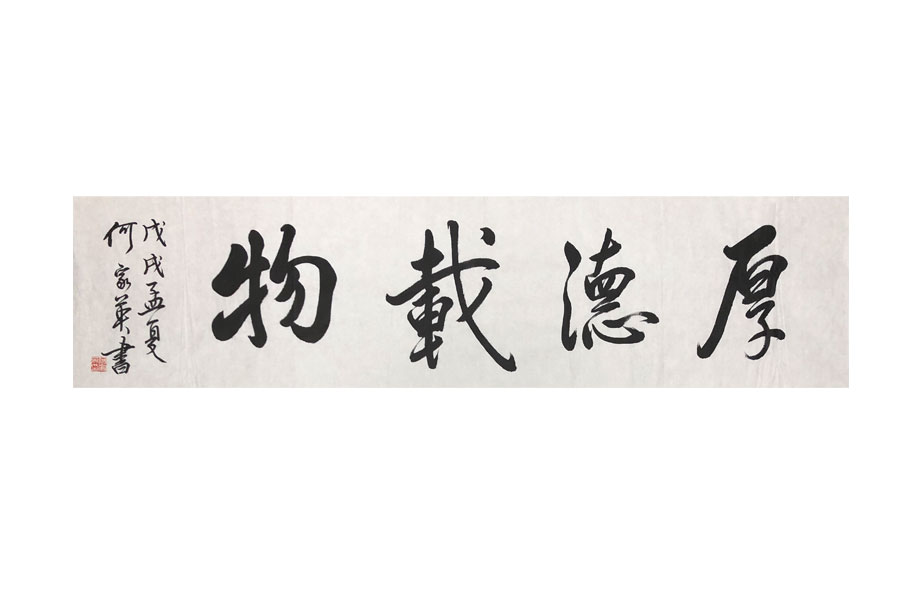 厚德載物
戊戌孟夏
何家英書